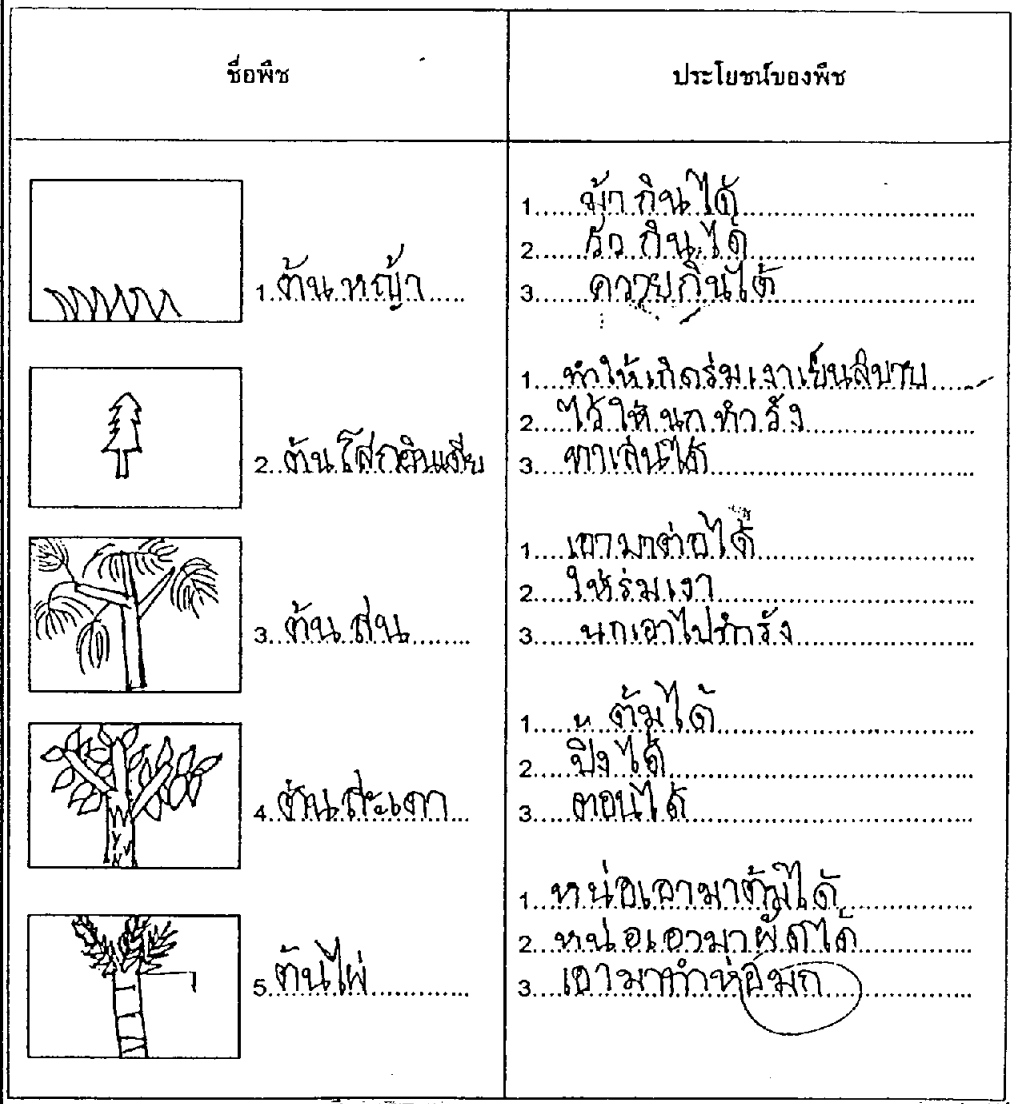 ชื่อพืช
ประโยชน์ของพืช
1. ต้นหญ้า
1. ม้ากินได้
2. วัว กินได้
3. ควายกินได้
2. ต้นโศกอินเดีย
1. ทำให้เกิดร่มเงาเย็นสบาย
2. ไว้ให้นกทำรัง
3.
3. ต้นสน
1. เอามาต่อได้
2. ให้ร่มเงา
3. นกเอาไปทำรัง
4. ต้นสะเดา
1. ต้มได้
2. ปิ้งได้
3. ตอนได้
5. ต้นไผ่
1. หน่อเอามาต้มได้
2. หน่อเอามาผัดได้
3. เอามาทำห่อมก